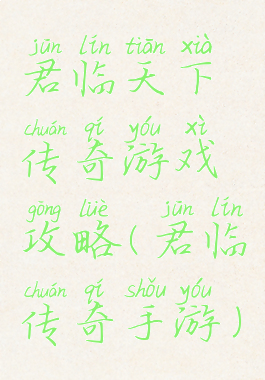 jūn lín tiān xià
君临天下
chuán qí yóu xì
传奇游戏
gōng lüè jūn lín
攻略(君临
chuán qí shǒu yóu
传奇手游)